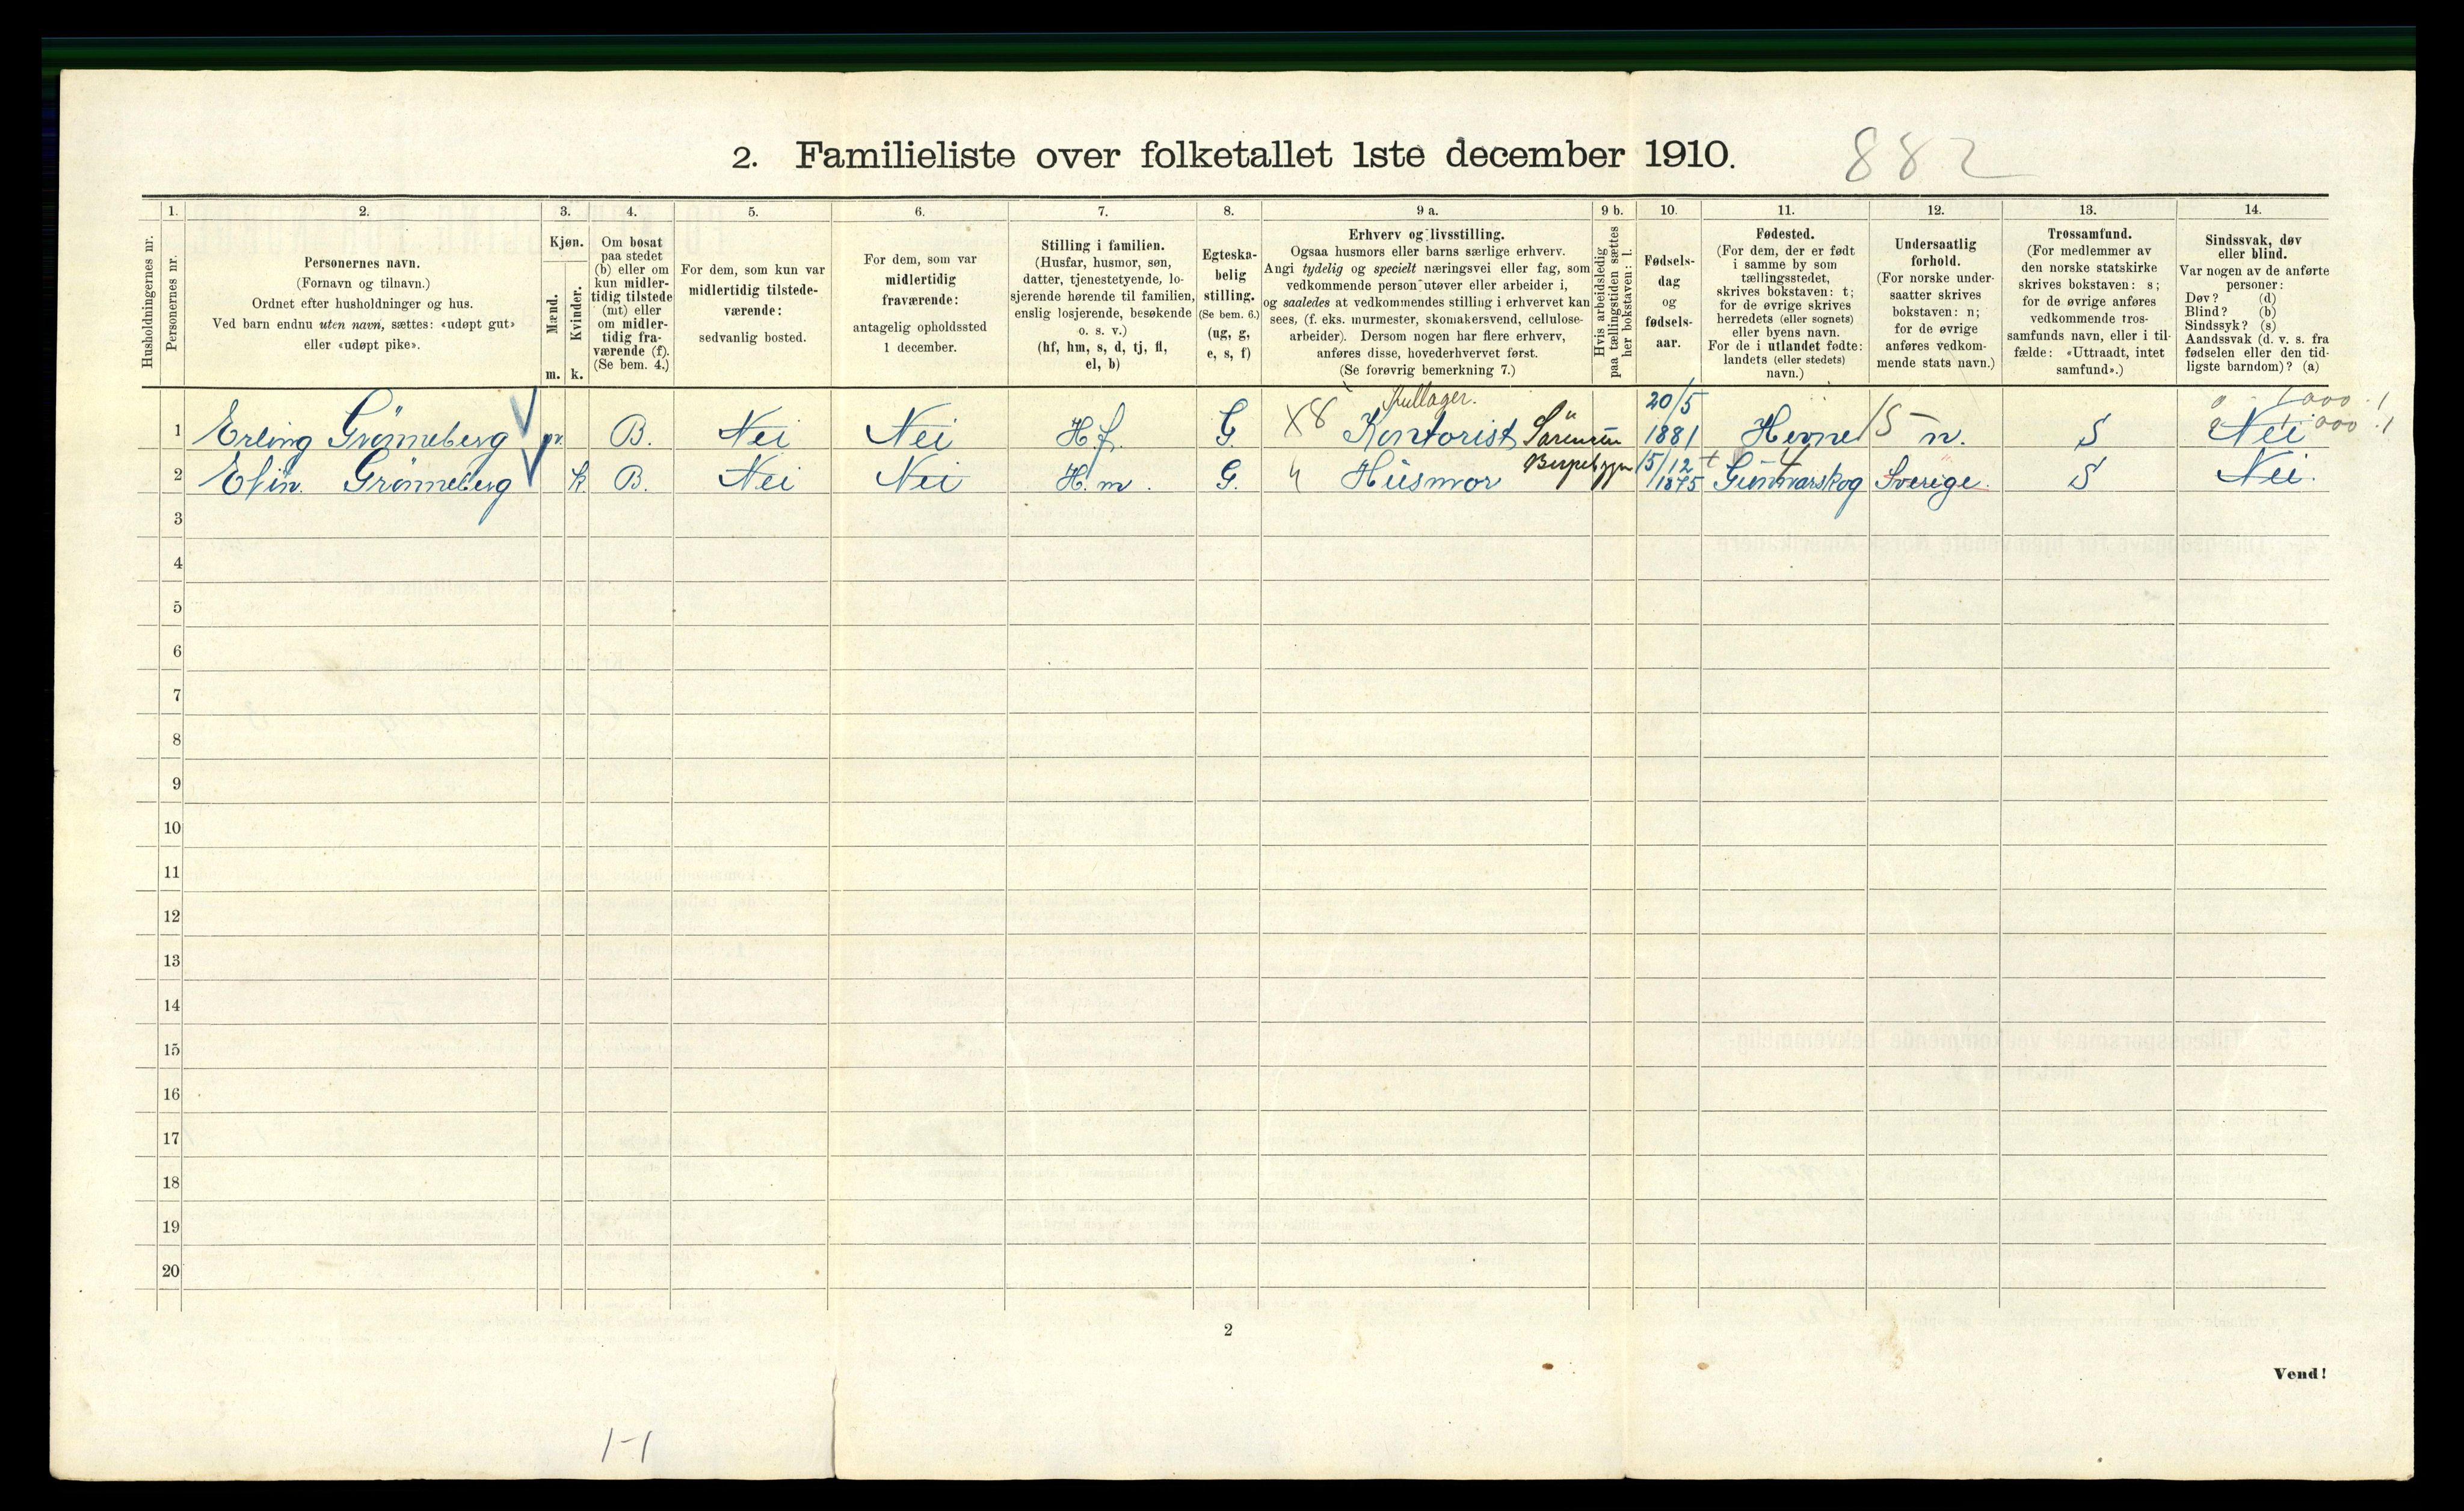 2. Familieliste over folketallet 1ste december 1910.
882
1. 2. 3. 4. 5. 6. 7. 8. 9 a. 9 b. 10. 11. 12. 13. 14.
Husholdningernes nr.
Personernes nr.
Personernes navn.
(Fornavn og tilnavn.)
Ordnet efter husholdninger og hus.
Ved barn endnu uten navn, sættes: «udøpt gut»
eller «udøpt pike».
Kjøn.
Mænd.
Kvinder.
m. k.
Om bosat
paa stedet
(b) eller om
kun midler-
tidig tilstede
(mt) eller
om midler-
tidig fra-
værende (f).
(Se bem. 4.)
For dem, som kun var
midlertidig tilstede-
værende:
sedvanlig bosted.
For dem, som var
midlertidig
fraværende:
antagelig opholdssted
1 december.
Stilling i familien.
(Husfar, husmor, søn,
datter, tjenestetyende, lo-
sjerende hørende til familien,
enslig losjerende, besøkende
o. s. v.)
(hf, hm, s, d, tj, fl,
el, b)
Egteska-
belig
stilling.
(Se bem. 6.)
(ug, g,
e, s, f)
Erhverv og livsstilling.
Ogsaa husmors eller barns særlige erhverv.
Angi tydelig og specielt næringsvei eller fag, som
vedkommende person utøver eller arbeider i,
og saaledes at vedkommendes stilling i erhvervet kan
sees, (f. eks. murmester, skomakersvend, cellulose-
arbeider). Dersom nogen har flere erhverv,
anføres disse, hovederhvervet først.
(Se forøvrig bemerkning 7.)
Hvis arbeidsledig
paa tællingstiden sættes
her bokstaven: l.
Fødsels-
dag
og
fødsels-
aar.
Fødested.
(For dem, der er født
i samme by som
tællingsstedet,
skrives bokstaven: t;
for de øvrige skrives
herredets (eller sognets)
eller byens navn.
For de i utlandet fødte:
landets (eller stedets)
navn.)
Undersaatlig
forhold.
(For norske under-
saatter skrives
bokstaven: n;
for de øvrige
anføres vedkom-
mende stats navn.)
Trossamfund.
(For medlemmer av
den norske statskirke
skrives bokstaven: s;
for de øvrige anføres
vedkommende tros-
samfunds navn, eller i til-
fælde: «Uttraadt, intet
samfund».)
Sindssvak, døv
eller blind.
Var nogen av de anførte
personer:
Døv? (d)
Blind? (b)
Sindssyk? (s)
Aandssvak (d. v. s. fra
fødselen eller den tid-
ligste barndom)? (a)
Kullager. 20/5
1 Erling Grønneberg m. B. Nei Nei H.f. G. X8 Kontorist Sörensen 1881 Hevne 15 n. S Nei
2 Elin Grønneberg k. B. Nei Nei H.m. G. Husmor 15/12 1875 Gunnarskog Sverige. S Nei.
3
4
5
6
7
8
9
10
11
12
13
14
15
16
17
18
19
20
2
Vend!
1-1